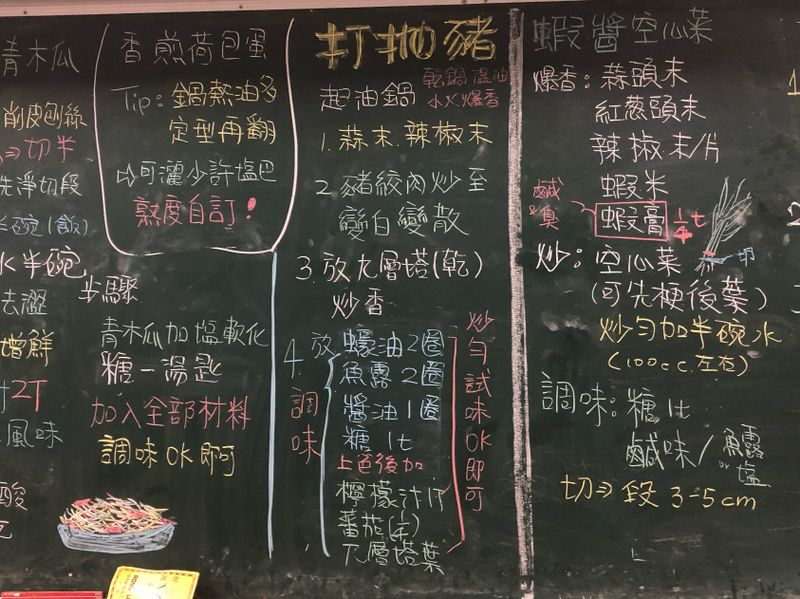 青木瓜
削皮刨絲
⇒切半
洗淨切段
半碗(飯)
水半碗
去澀
增鮮
2T
風味
酸
香煎荷包蛋
Tip: 鍋熱油多
定型再翻
⇨可灑少許塩巴
熟度自訂!
步驟
青木瓜加塩軟化
糖一湯匙
加入全部材料
調味OK即可
打拋豬
起油鍋 乾鍋溫油
小火爆香
1. 蒜末.辣椒末
2 豬絞肉炒至
變白變散
3. 放九層塔(乾)
炒香
4. 放調味
蠔油2圈
魚露2圈
醬油1圈
糖 1t
上色後加
檸檬汁1T
蕃茄(¼)
九層塔葉
炒勻試味OK即可
蝦醬空心菜
爆香: 蒜頭末
紅葱頭末
辣椒末/片
蝦米
鹹&臭 蝦膏 ¼t
炒: 空心菜 切
(可先梗後葉)
炒勻加半碗水
(100c.c.左右)
調味: 糖1t
鹹味/魚露
or塩
切⇒段 3-5cm